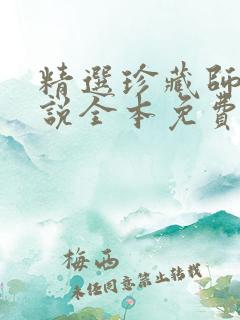 精選珍藏師
說全本免費
梅西
未经同意禁止转载